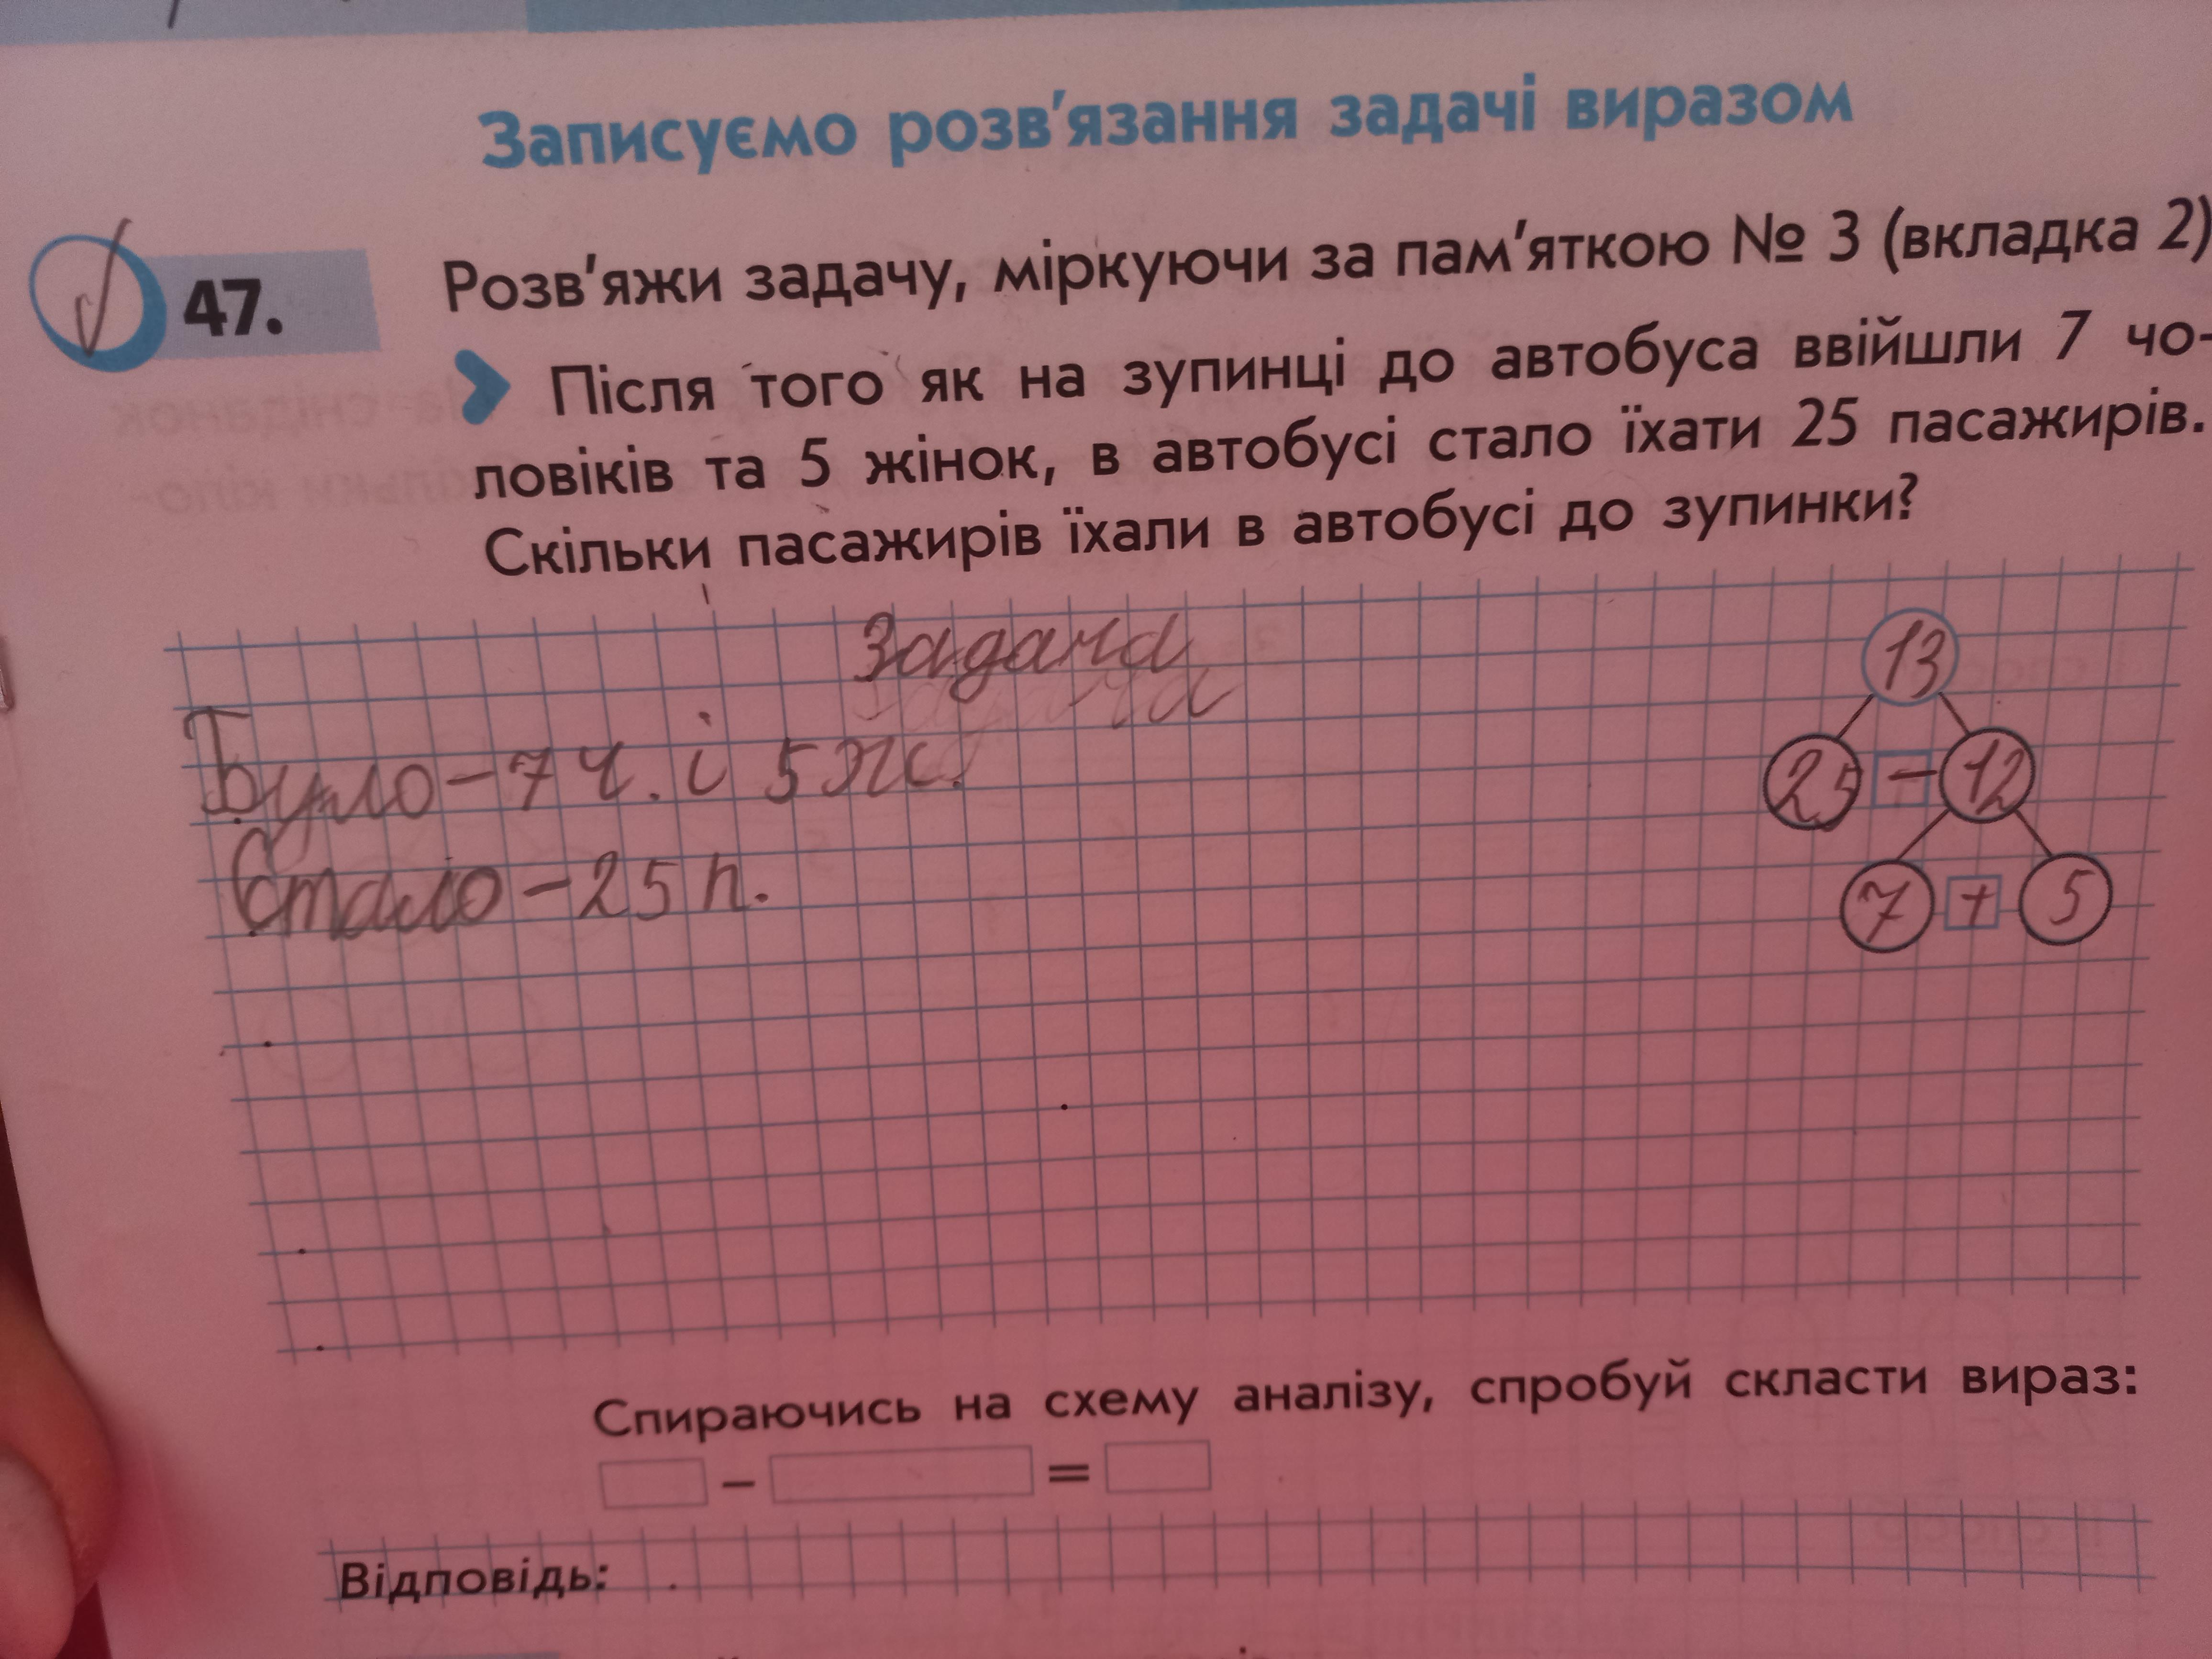 Записуємо розв'язання задачі виразом
47. Розв'яжи задачу, міркуючи за пам'яткою № 3 (вкладка 2)
Після того як на зупинці до автобуса ввійшли 7 чо-
ловіків та 5 жінок, в автобусі стало їхати 25 пасажирів.
Скільки пасажирів їхали в автобусі до зупинки?
Задача
13
Було – 7 ч. і 5 ж.
25 – 12
Стало – 25 п.
7 + 5
Спираючись на схему аналізу, спробуй скласти вираз:
– =
Відповідь: